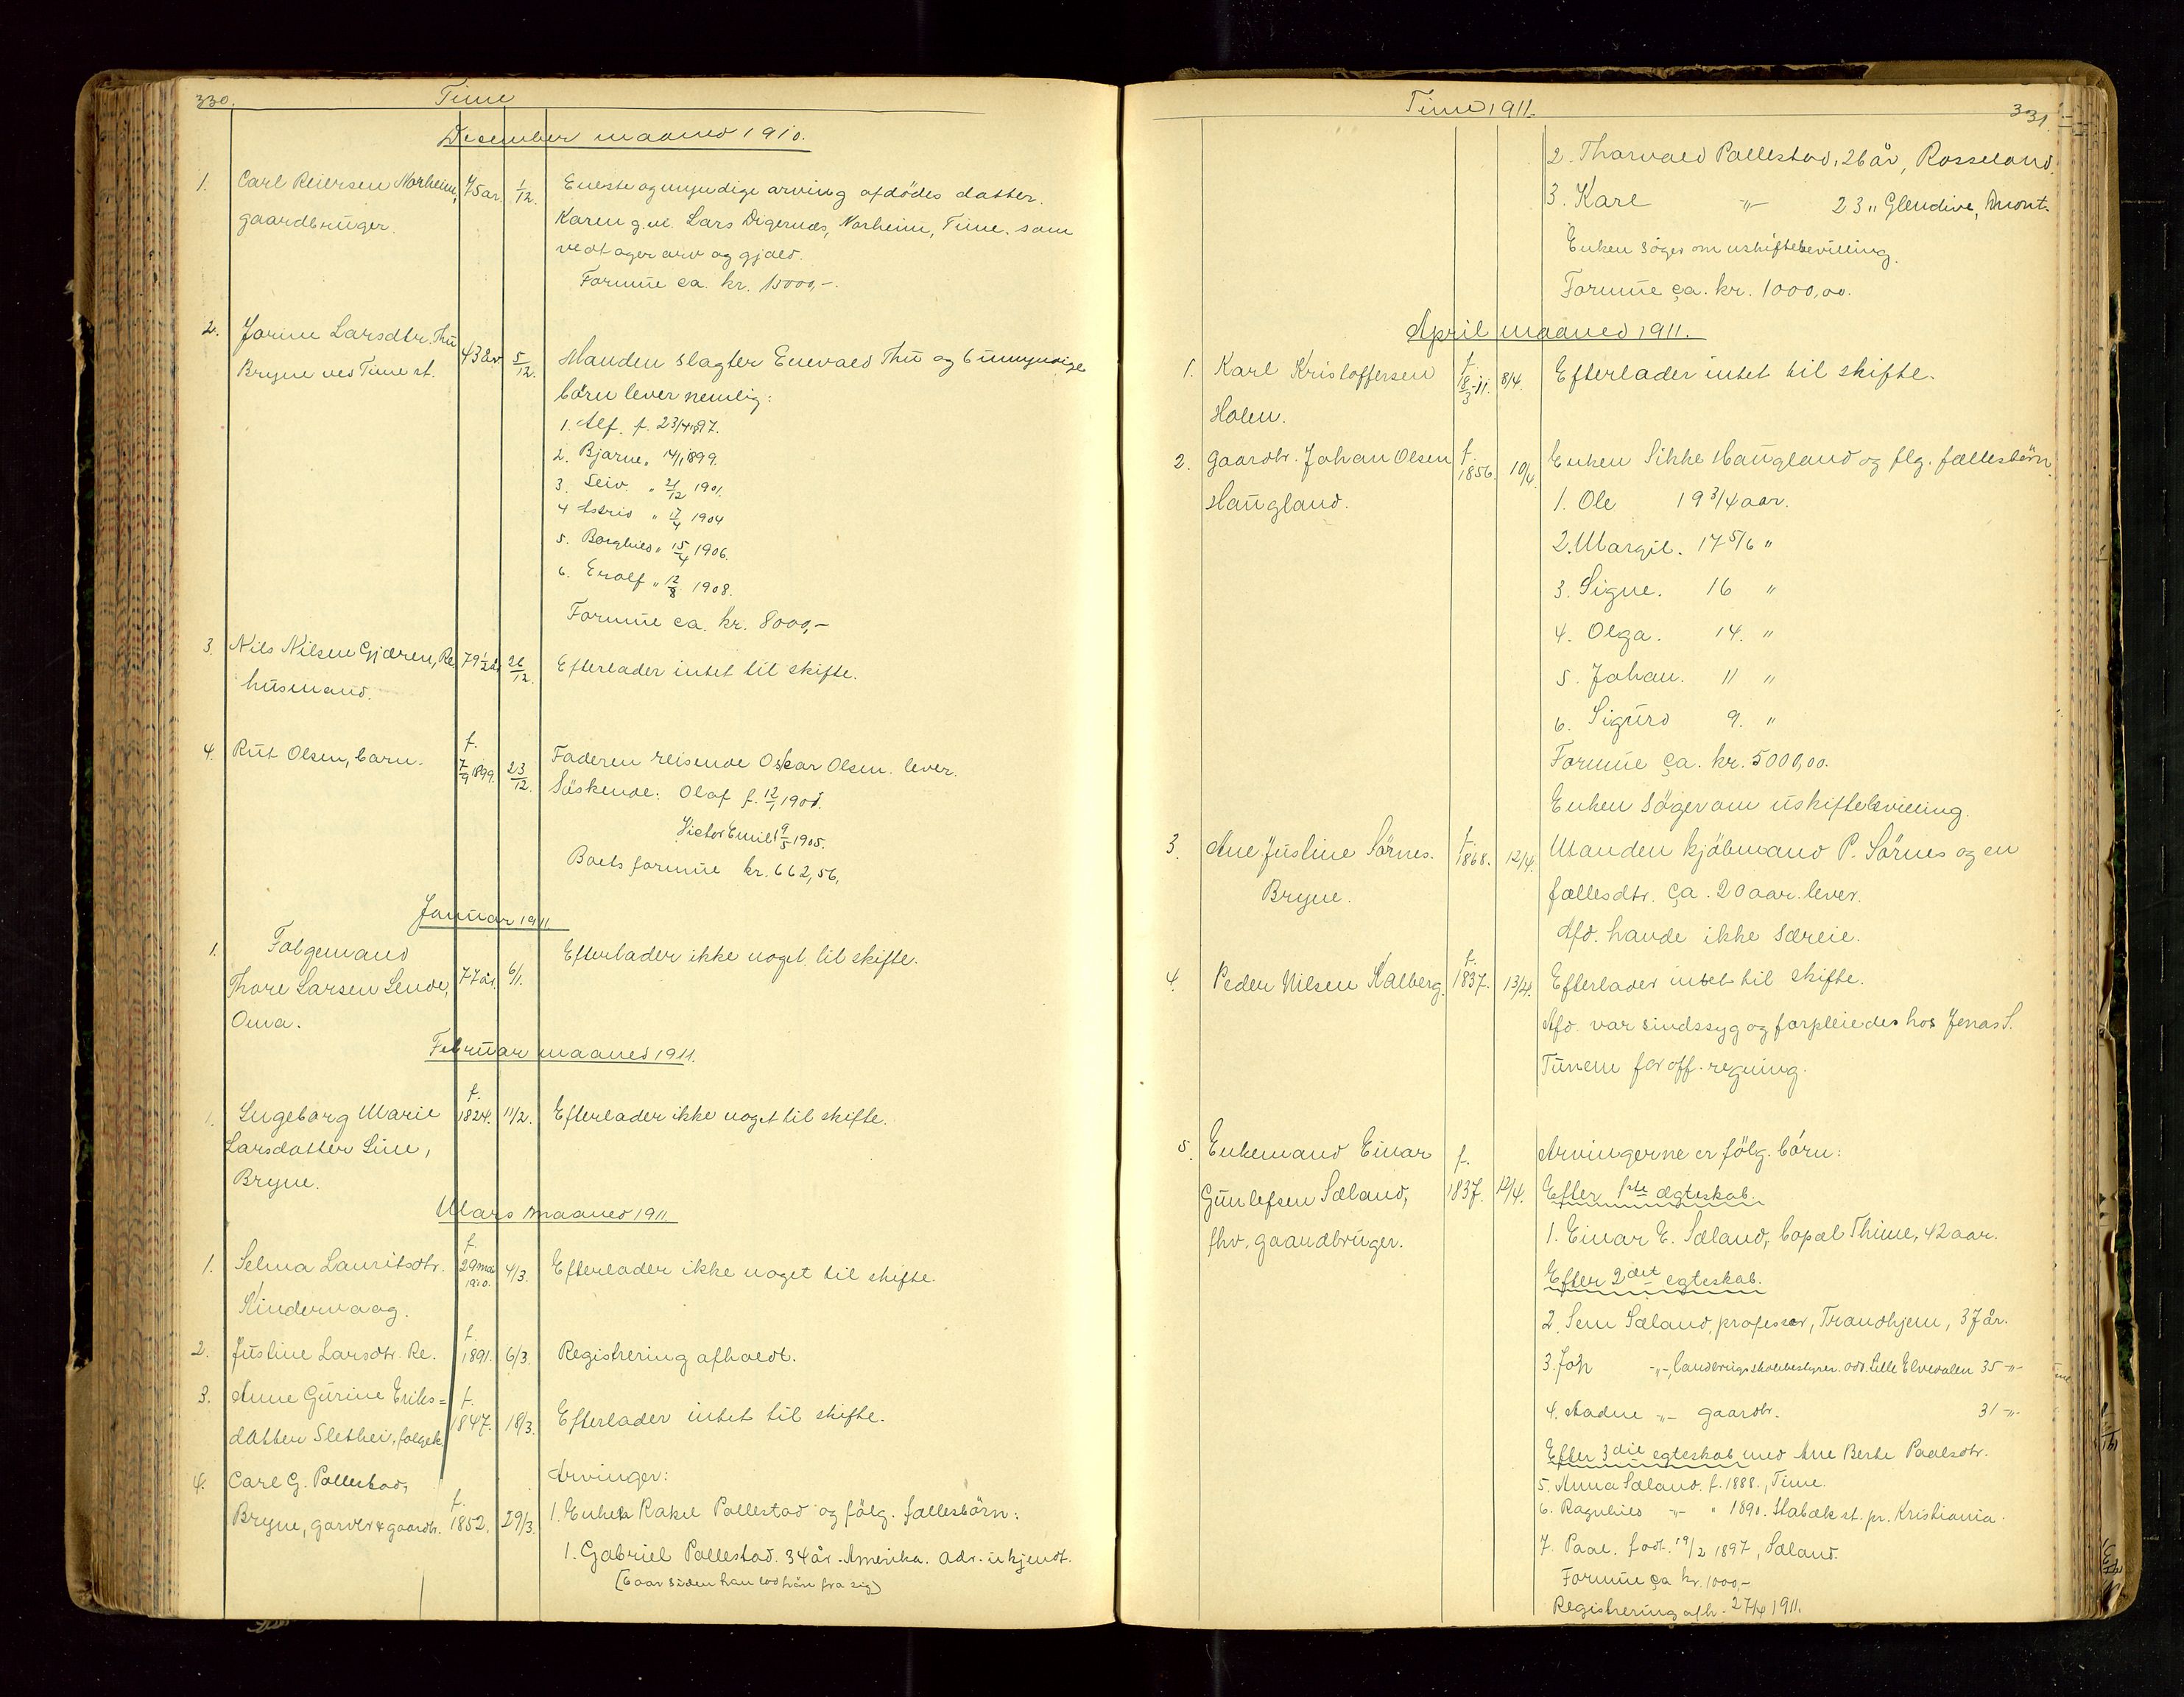 330.
Time
December maaned 1910.
1. Carl Reiersen Norheim, 75 år. 1/12. Eneste og myndige arving afdødes datter.
gaardbruger. Karen g.m. Lars Digernæs, Norheim, Time. som
vedtager arv og gjæld.
Formue ca. kr. 15000,-.
2. Jorine Larsdtr. Thu
Bryne ved Time st. 43 år 5/12. Manden slagter Enevald Thu og 6 umyndige
børn lever nemlig:
1. Alf. f. 23/4 1897.
2. Bjarne " 14/1 1899.
3. Leiv. " 21/12 1901.
4 Astrid " 17/4 1904
5. Borghild " 15/4 1906.
6. Erolf " 12/8 1908.
Formue ca. kr. 8000,-
3. Nils Nilsen Gjæren, Re 79 1/2 år 26/12. Efterlader intet til skifte.
husmand.
4. Rut Olsen, barn. f. 7/9 1899. 23/12. Faderen reisende Oskar Olsen. lever.
Søskende: Olaf f. 12/1 1901.
Victor Emil f 9/5 1905.
Boets formue kr. 662,56,
Januar 1911
1. Følgemand Efterlader ikke noget til skifte.
Thore Larsen Lende, 77 år. 6/1.
Oma.
Februar maaned 1911.
1. Ingeborg Marie f. 1824. 11/2. Efterlader ikke noget til skifte.
Larsdatter Line,
Bryne.
Mars maaned 1911.
1. Selma Lauritsdtr. f. 29 mai 1910. 4/3. Efterlader ikke noget til skifte.
Kindervaag.
2. Justine Larsdtr. Re. f. 1891. 6/3. Registrering afholdt.
3. Anne Gurine Eriks= f.
datter Slethei, folgek. 1847. 18/3. Efterlader intet til skifte.
4. Carl G. Pollestad, Arvinger:
Bryne, garver & gaardbr. f. 1852. 29/3. 1. Enken Rakel Pollestad og følg. fællesbörn:
1. Gabriel Pollestad. 34 år. Amerika. Adr. ukjendt.
(6 aar siden han lod høre fra sig)
Time 1911.
331.
2. Thorvald Pollestad, 26 år, Rosseland.
3. Karl -"- 23 " Glendive, Mont.
Enken søger om uskiftebevilling.
Formue ca. kr. 1000,00.
April maaned 1911.
1. Karl Kristoffersen f. 18/3-11. 8/4. Efterlader intet til skifte.
Holen.
2. Gaardbr. Johan Olsen f. 1856. 10/4. Enken Sikke Haugland og flg. fællesbørn.
Haugland. 1. Ole 19 3/4 aar.
2. Margit. 17 5/6 "
3. Signe. 16 "
4. Olga. 14. "
5. Johan. 11 "
6. Sigurd 9. "
Formue ca. kr. 5000,00.
Enken søger om uskiftebevilling.
3. Ane Justine Sörnes. f. 1868. 12/4. Manden kjøbmand P. Sörnes og en
Bryne. fællesdtr. ca. 20 aar lever.
Afd. havde ikke særeie.
4. Peder Nilsen Kalberg. f. 1837. 13/4. Efterlader intet til skifte.
Afd. var sindssyg og forpleiedes hos Jonas S.
Tunem for off. regning.
5. Enkemand Einar f. Arvingerne er følg. börn:
Gunlefsen Sæland, 1837. 12/4. Efter 1ste ægteskab.
fhv. gaardbruger. 1. Einar E. Sæland, bopæl Thime, 42 aar.
Efter 2det egteskab.
2. Sem Sæland, professor, Trondhjem, 37 år.
3. Joh -"-, landbrugsskolebestyrer. adr. Lille Elvedalen 35 -"-
4. Aadne -"- gaardbr. 31 -"-
Efter 3die egteskab med Ane Berte Paalsdtr.
5. Anna Sæland. f. 1888., Time.
6. Ragnhild -"- " 1890. Stabæk st. pr. Kristiania.
7. Paal. født. 19/2 1897, Sæland.
Formue ca kr. 1000,-
Registrering afh. 27/4 1911.